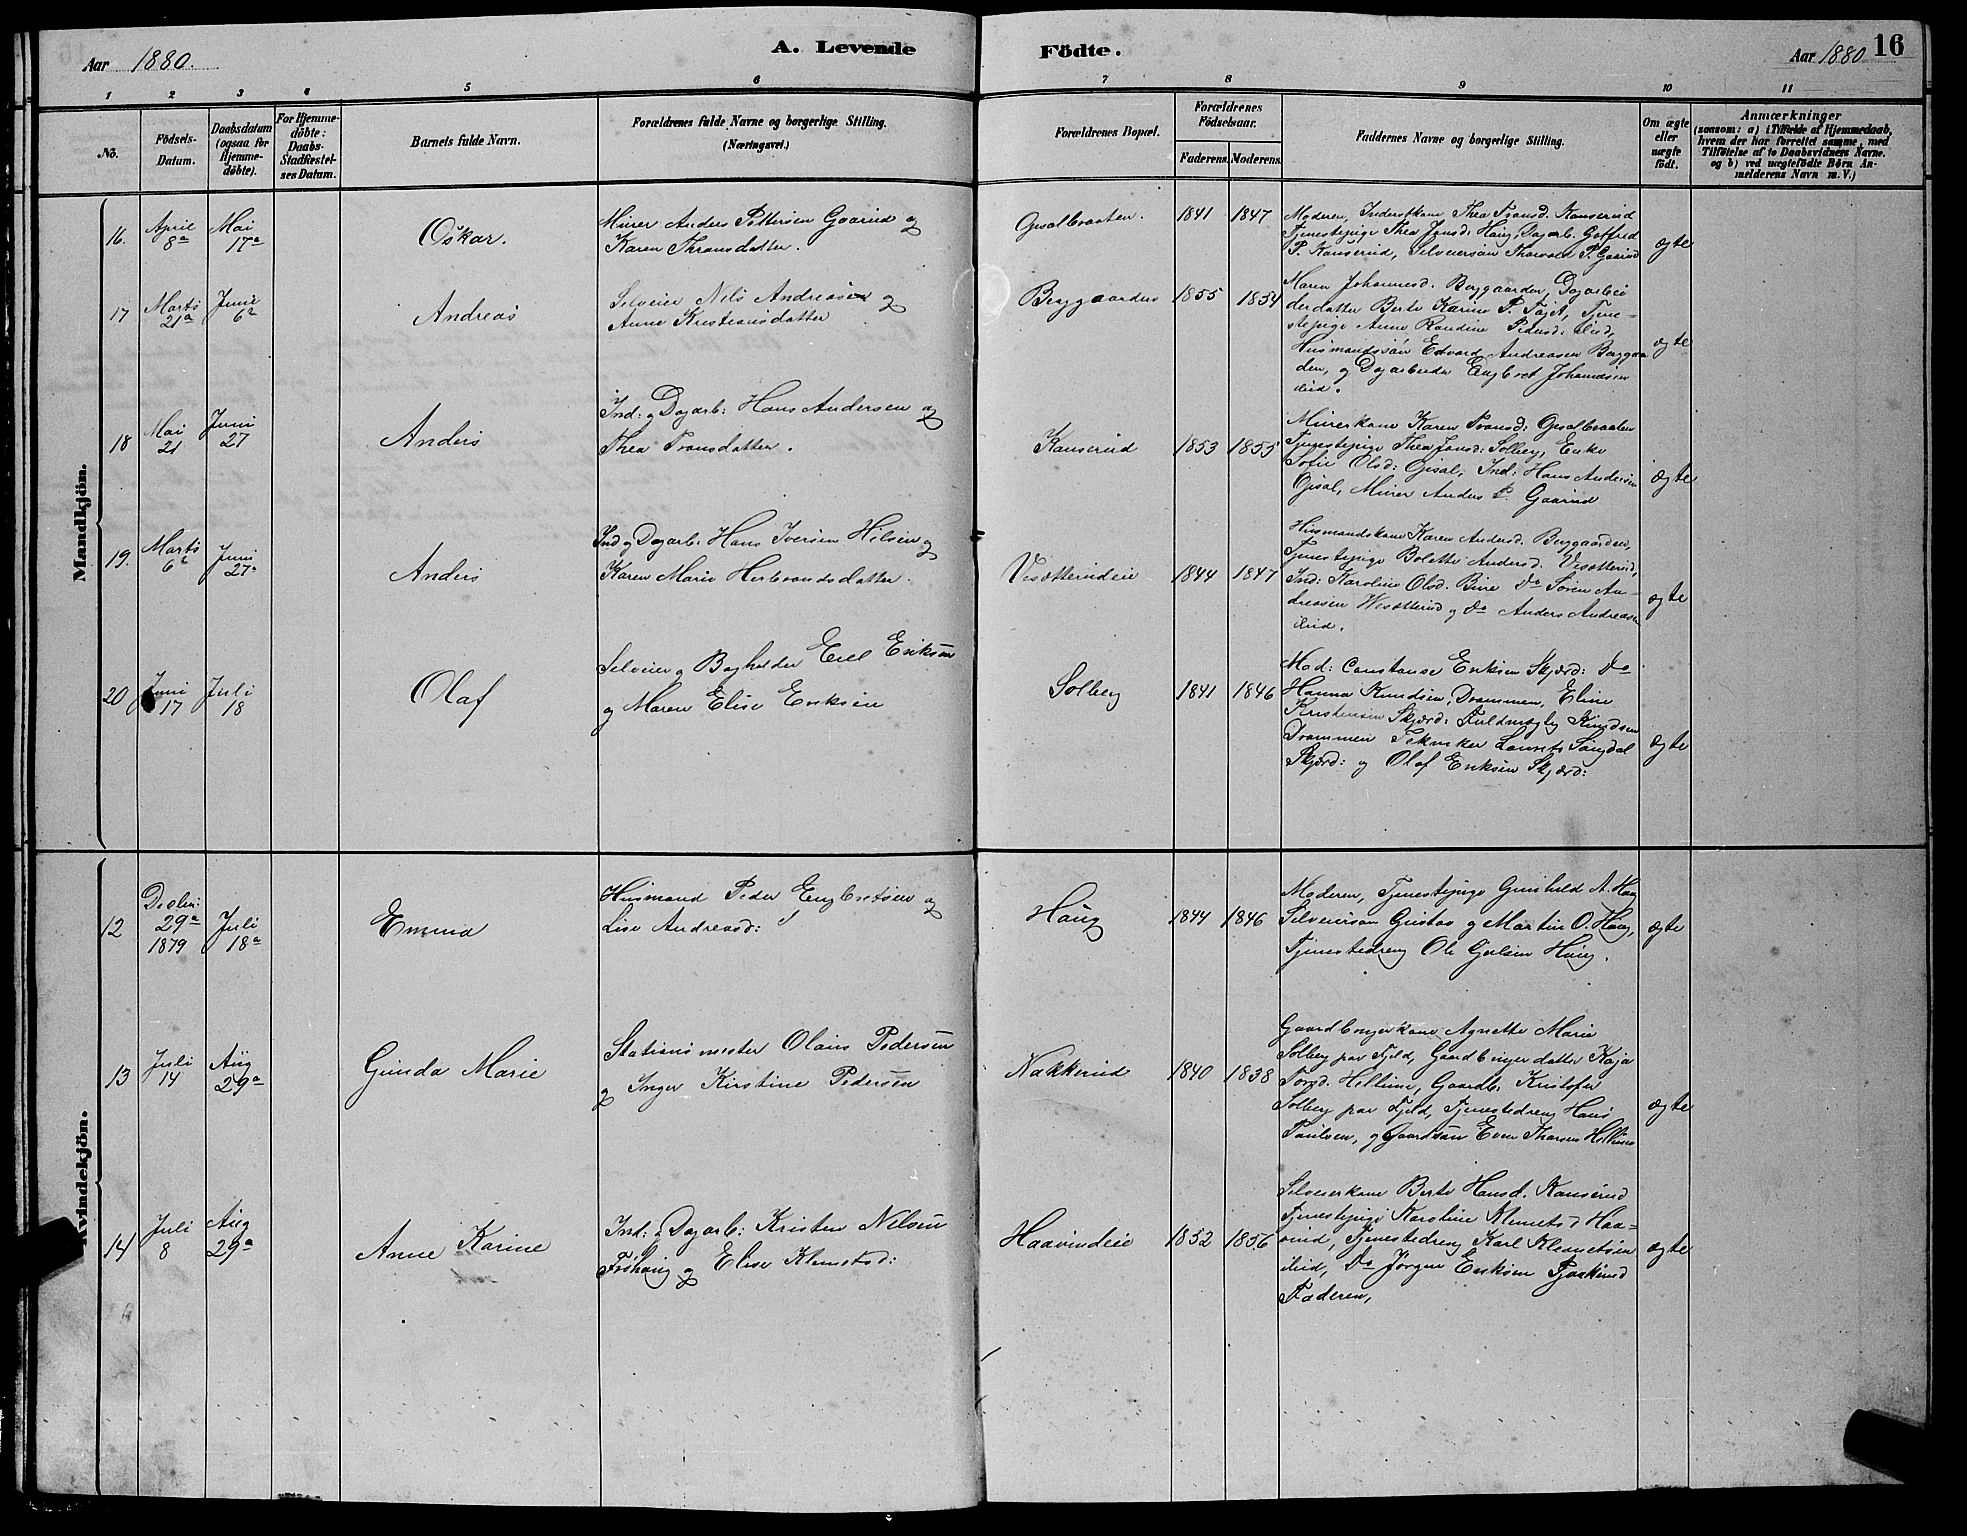 Aar 1880.
A. Levende Födte.
Aar 1880
16
1 2 3 4 5 6 7 8 9 10 11
No.
Födsels-
Datum.
Daabsdatum
(ogsaa for
Hjemme-
döbte).
For Hjemme-
döbte:
Daabs-
Stadfæstel-
ses Datum.
Barnets fulde Navn.
Forældrenes fulde Navne og borgerlige Stilling.
(Næringsvei.)
Forældrenes Bopæl.
Forældrenes
Födselsaar.
Faderens. Moderens.
Faddernes Navne og borgerlige Stilling.
Om ægte
eller
uægte
födt.
Anmærkninger
(saasom: a) i Tilfælde af Hjemmedaab,
hvem der har forrettet samme, med
Tilföielse af to Daabsvidners Navne.
og b) ved uægtefödte Börn An-
melderens Navn m. V.)
Mandkjön.
16.
April
8a
Mai
17a
Oskar.
Murer Anders Pettersen Gaarud og
Karen Thransdatter.
Opsalbraaten.
1841 1847
Moderen, Inderstkone Thea Transd. Kanserud
Tjenestepige Thea Jonsd: Haug, Dagarb. Gotfred
P. Kanserud, Selveiersøn Thorvald P. Gaarud
ægte
17
Marts
21a
Juni
6a
Andreas
Selveier Nils Andreasen og
Anne Kristiansdatter
Berggaarden
1855 1854
Maren Johannesd. Berggaarden, Dagarbei
derdatter Berte Karine P. Føjet, Tjene-
stepige Anne Randine Pedersd: Lid,
Husmandssøn Edvard Andreasen Berggaar
den, og Dagarbeider Engbret Johansen
Lid.
ægte
18
Mai
21
Juni
27
Anders
Ind: og Dagarb: Hans Andersen og
Thea Transdatter.
Kanserud
1853 1855
Murerkone Karen Transd: Opsalbraaten
Tjenestepige Thea Jonsd: Solberg, Enke
Sofie Olsd: Opsal, Ind: Hans Andersen
Opsal, Murer Anders P. Gaarud
ægte
19.
Marts
6a
Juni
27a
Anders
Ind og Dagarb. Hans Iversen Hilsen og
Karen Marie Herbrandsdatter.
Visætterudeie
1844 1847
Husmandskone Karen Andersd. Berggaarden,
Tjenestepige Bolette Andersd. Visætterud,
Ind: Karoline Olsd. Bure Do Søren An-
dreasen Visætterud og Do Anders Andreasen
Lid.
ægte
20
Juni
17
Juli
18
Olaf
Selveier og Bogholder Emil Eriksen
og Maren Elise Eriksen
Solberg
1841 1846
Mad: Constanse Eriksen Skjærd: Do
Hanna Knudsen, Drammen, Eline
Kristensen Skjærd: Fuldmægtig Knudsen
Drammen Tekniker Laurits Sangdal
Skjærd: og Olaf Eriksen Skjærd:
ægte
Kvindekjön.
12
Decbr:
29a
1879
Juli
18a
Emma
Husmand Peder Engbretsen og
Lise Andreasd:
Haug
1844 1846
Moderen, Tjenestepige Gunhild A. Haug
Selveiersøn Gustav og Martin O. Haug,
Tjenestedreng Ole Gulsen Haug.
ægte
13
Juli
14
Aug
29a
Gunda Marie
Stationsmester Olaus Pedersen
og Inger Kirstine Pedersen
Nakkerud
1840 1838
Gaardbrugerkone Agnette Marie
Solberg paa Fjeld, Gaardbrugerdatter Kaja
Torsd. Hellum, Gaardb. Kristofer
Solberg paa Fjeld, Tjenestedreng Hans
Paulsen, og Gaardsøn Even Thorsen Hellum
ægte
14
Juli
8
Aug
29a
Anne Karine
Ind: Dagarb: Kristen Nilsen
Frøhaug og Elise Klemetsd:
Haavindeie
1852 1856
Selveierkone Berte Hansd. Kanserud
Tjenestepige Karoline Klemetsd Haa-
vind, Tjenestedreng Karl Klemetsen
Lid, Do Jørgen Eriksen
Faderen,
ægte